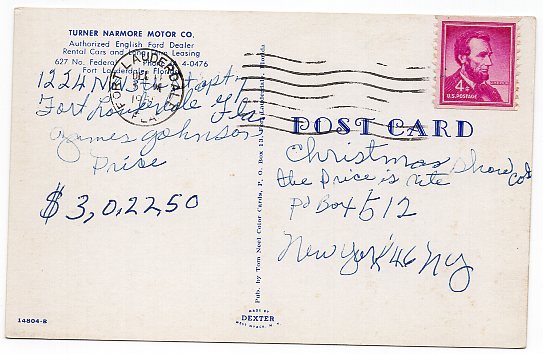 TURNER NARMORE MOTOR CO.
Authorized English Ford Dealer
Rental Cars and Leasing
627 No. Federal 4-0476
Fort Lauderdale, Florida
FORT LAUDERDALE
DEC
FLA
4¢
U.S. POSTAGE
1224 NW
Fort Lauderdale Fla
James Johnson
Price
$ 3,022.50
POST CARD
Christmas Show
the Price is rite
PO Box 4512
New York 46 NY
Pub. by Tom Neel Color Cards, P. O. Box 13, Fort Lauderdale, Florida
14804-B
MADE BY
DEXTER
WEST NYACK, N. Y.